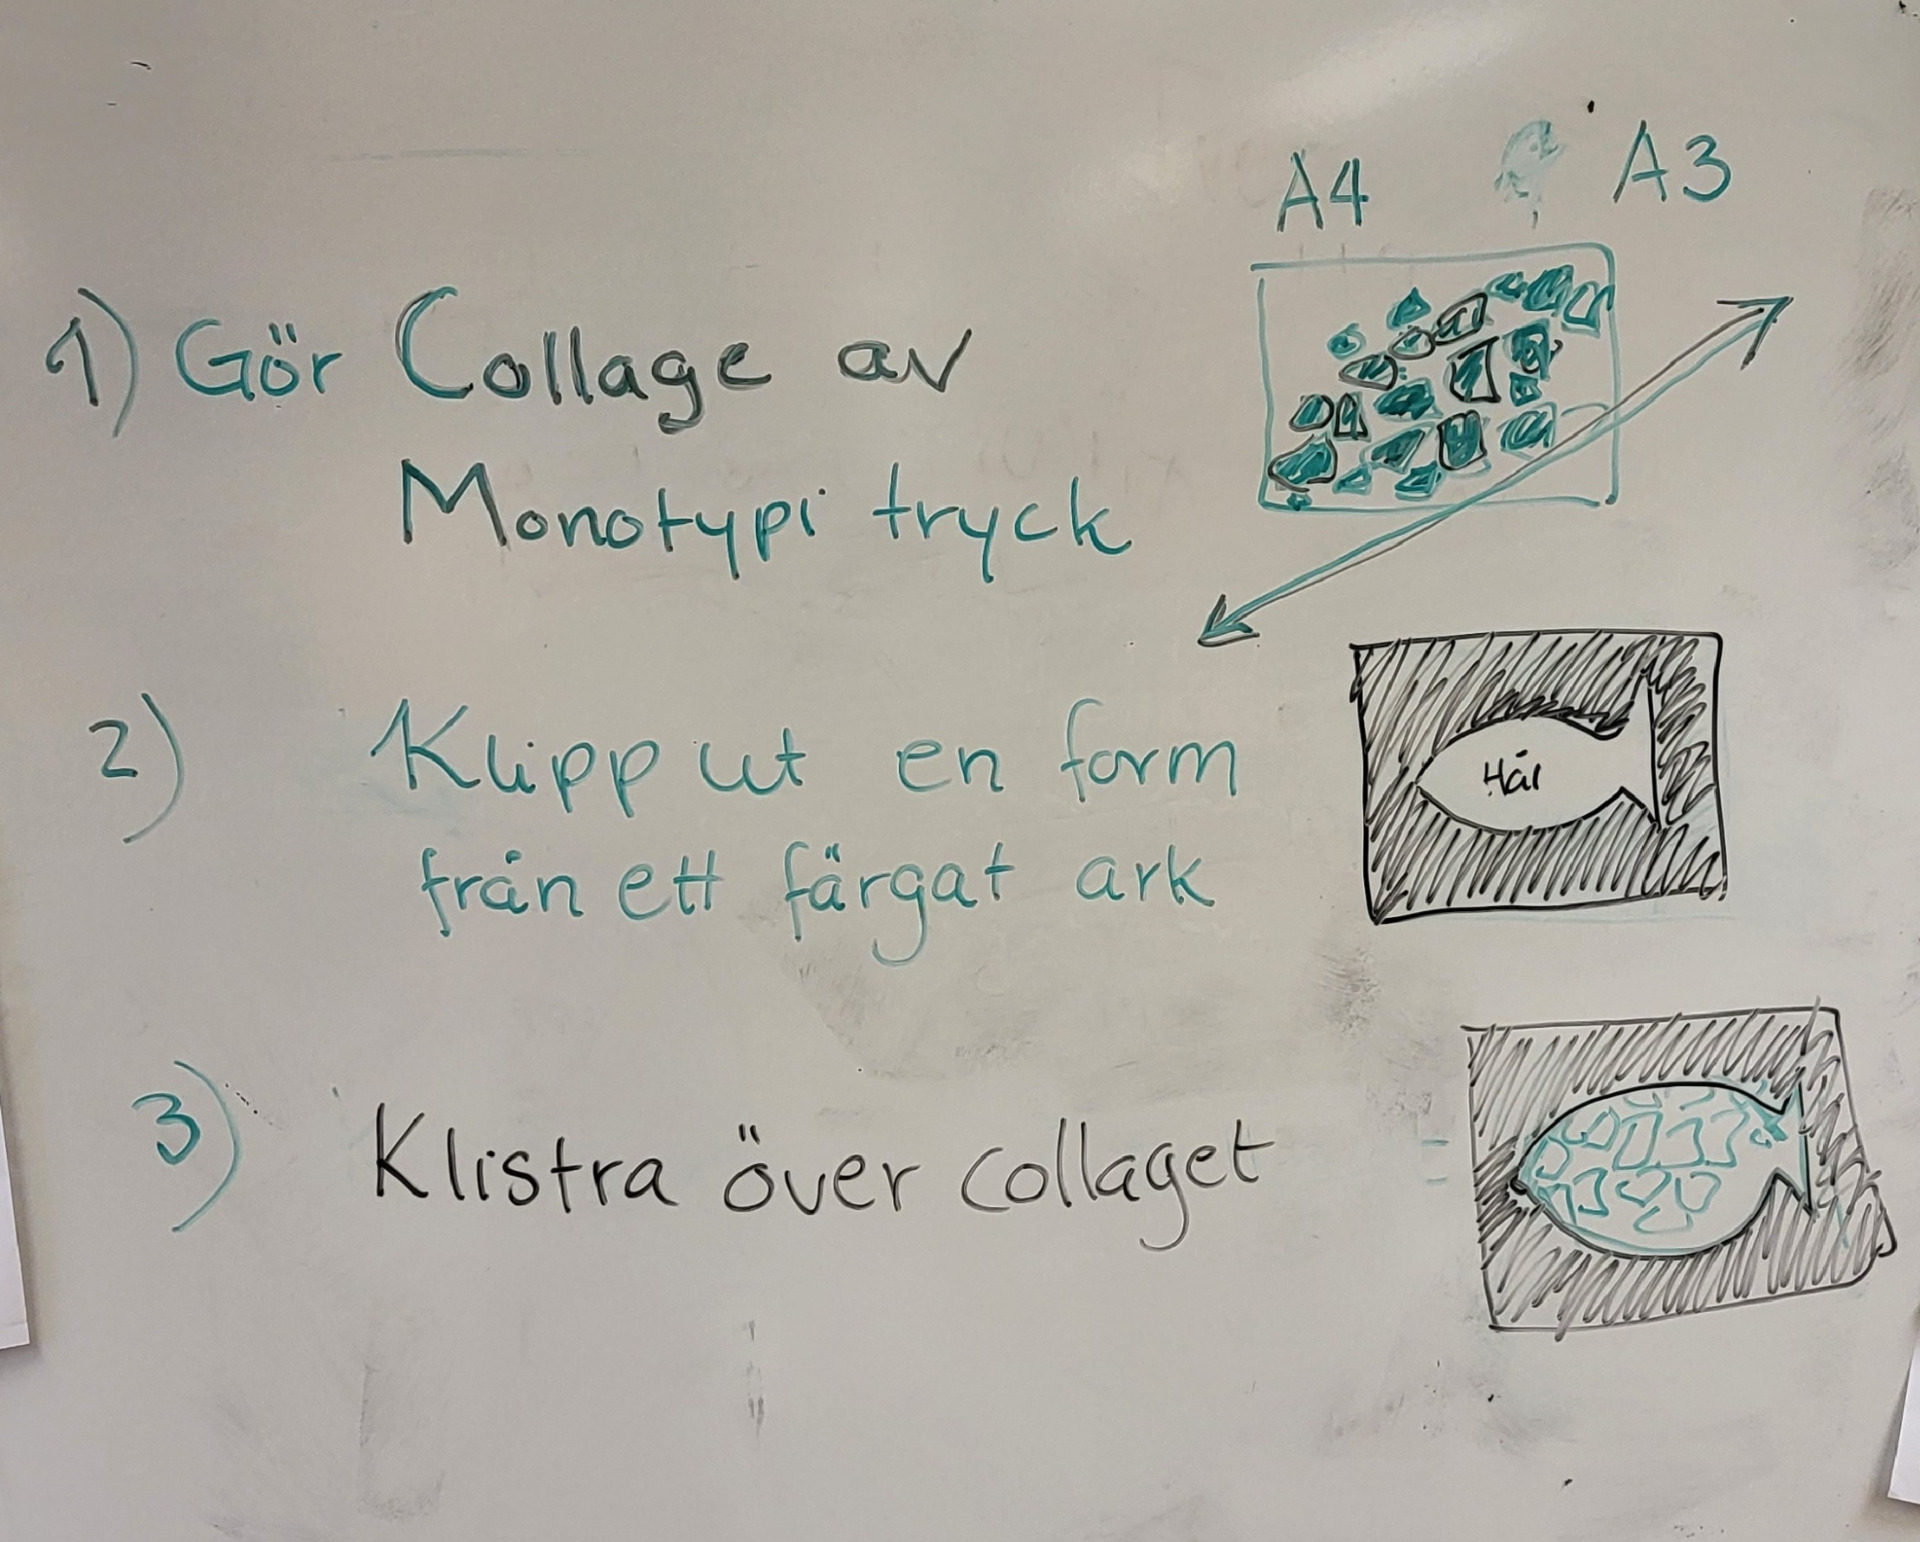 A4 A3
1) Gör Collage av
Monotypi tryck
2) Klipp ut en form
från ett färgat ark
Hål
3) Klistra över collaget
=